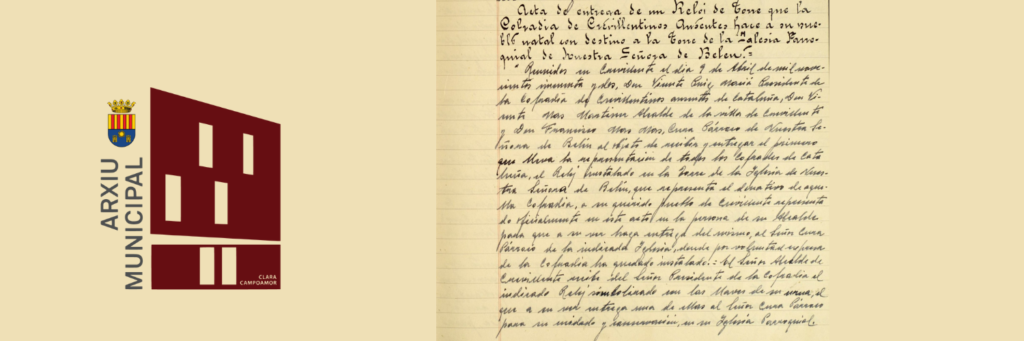 ARXIU
MUNICIPAL
CLARA
CAMPOAMOR
Acta de entrega de un Reloj de Torre que la
Cofradia de Crevillentinos Ausentes hace a su pue-
blo natal con destino a la Torre de la Iglesia Parro-
quial de Nuestra Señora de Belen.=
Reunidos en Crevillente el dia 9 de Abril de mil nove-
cientos cincuenta y dos, Don Vicente Puig Presidente de
la Cofradia de Crevillentinos ausentes de Cataluña, Don Vi-
cente Mas Martinez Alcalde de la villa de Crevillente
y Don Francisco Mas Mas, Cura Párroco de Nuestra Se-
ñora de Belén al objeto de recibir y entregar el primero
que lleva la representación de todos los Cofrades de Cata-
luña, el Reloj instalado en la Torre de la Iglesia de Nues-
tra Señora de Belén, que representa el donativo de aque-
lla Cofradia, a su querido pueblo de Crevillente representa-
do oficialmente en este acto en la persona de su Alcalde
para que a su vez haga entrega del mismo, al Señor Cura
Párroco de la indicada Iglesia, donde por voluntad expresa
de la Cofradia ha quedado instalado.= El Señor Alcalde de
Crevillente recibe del Señor Presidente de la Cofradia el
indicado Reloj simbolizado con las llaves de su el
que a su vez entrega una de ellas al Señor Cura Párroco
para su cuidado y conservación, en su Iglesia Parroquial.